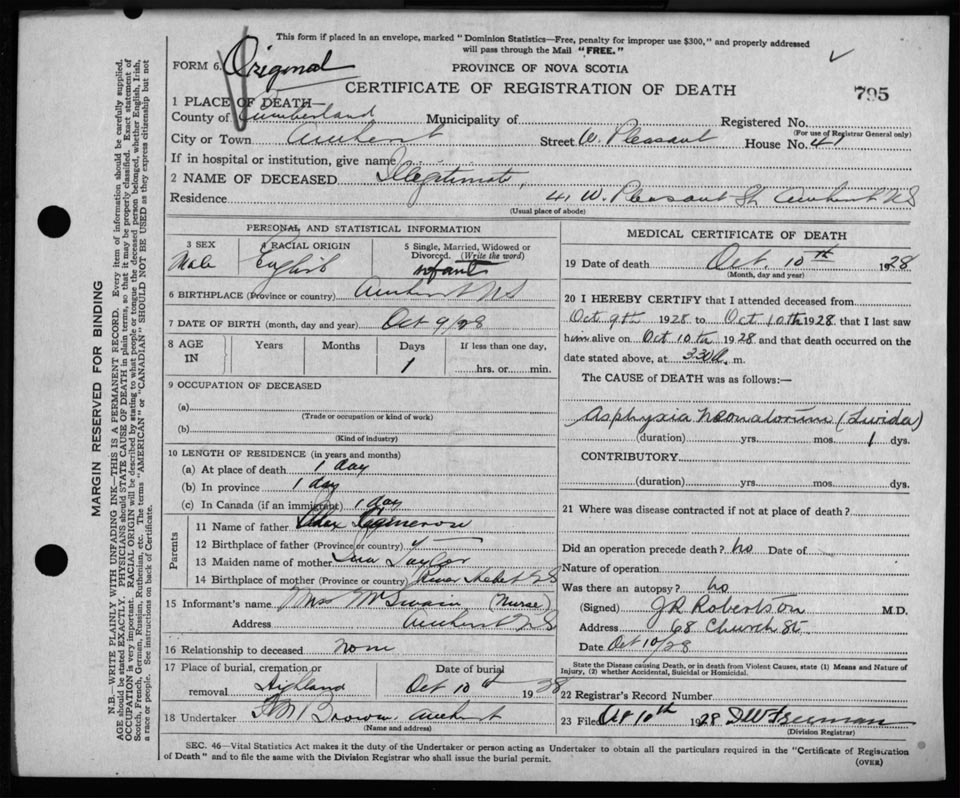 This form if placed in an envelope, marked "Dominion Statistics—Free, penalty for improper use $300," and properly addressed
will pass through the Mail "FREE."
FORM 6. Original
PROVINCE OF NOVA SCOTIA
CERTIFICATE OF REGISTRATION OF DEATH
795
1 PLACE OF DEATH—
County of Cumberland Municipality of Registered No.
(For use of Registrar General only)
City or Town Amherst Street W. Pleasant House No. 41
If in hospital or institution, give name
2 NAME OF DECEASED Illegitimate,
Residence 41 W. Pleasant St Amherst NS
(Usual place of abode)
PERSONAL AND STATISTICAL INFORMATION
3 SEX Male
4 RACIAL ORIGIN English
5 Single, Married, Widowed or
Divorced. (Write the word)
infant
6 BIRTHPLACE (Province or country) Amherst NS
7 DATE OF BIRTH (month, day and year) Oct 9/28
8 AGE IN Years Months Days If less than one day,
1 hrs. or min.
9 OCCUPATION OF DECEASED
(a)
(Trade or occupation or kind of work)
(b)
(Kind of industry)
10 LENGTH OF RESIDENCE (in years and months)
(a) At place of death 1 day
(b) In province 1 day
(c) In Canada (if an immigrant) 1 day
Parents
11 Name of father Alex
12 Birthplace of father (Province or country)
13 Maiden name of mother Taylor
14 Birthplace of mother (Province or country) River Hebert NS
15 Informant's name Miss McSwain (Nurse)
Address Amherst NS
16 Relationship to deceased None
17 Place of burial, cremation or Date of burial
removal Highland Oct 10th 1928
18 Undertaker Brown, Amherst
(Name and address)
MEDICAL CERTIFICATE OF DEATH
19 Date of death Oct. 10th 1928
(Month, day and year)
20 I HEREBY CERTIFY that I attended deceased from
Oct 9th 1928 to Oct 10th 1928 that I last saw
him alive on Oct 10th 1928 and that death occurred on
date stated above, at 3.30 m.
The CAUSE of DEATH was as follows:—
Asphyxia Neonatorum (Livida)
(duration) yrs. mos. 1 dys.
CONTRIBUTORY
(duration) yrs. mos. dys.
21 Where was disease contracted if not at place of death?
Did an operation precede death? no Date of
Nature of operation
Was there an autopsy? no
(Signed) J R Robertson M.D.
Address 68 Church St.
Date Oct 10/28
State the Disease causing Death, or in death from Violent Causes, state (1) Means and Nature of
Injury, (2) whether Accidental, Suicidal or Homicidal.
22 Registrar's Record Number
23 Filed Oct 10th 1928 Freeman
(Division Registrar)
SEC. 46—Vital Statistics Act makes it the duty of the Undertaker or person acting as Undertaker to obtain all the particulars required in the "Certificate of Registration
of Death" and to file the same with the Division Registrar who shall issue the burial permit.
(OVER)
MARGIN RESERVED FOR BINDING
N.B.—WRITE PLAINLY WITH UNFADING INK—THIS IS A PERMANENT RECORD. Every item of information should be carefully supplied.
AGE should be stated EXACTLY. PHYSICIANS should STATE CAUSE OF DEATH in plain terms, so that it may be properly classified. Exact statement of
OCCUPATION is very important. RACIAL ORIGIN will be described by stating to what people or tongue the deceased person belonged, whether English, Irish,
Scotch, French, German, Russian, Ruthenian, etc. The terms "AMERICAN" or "CANADIAN" SHOULD NOT BE USED as they express citizenship but not
a race or people. See instructions on back of Certificate.